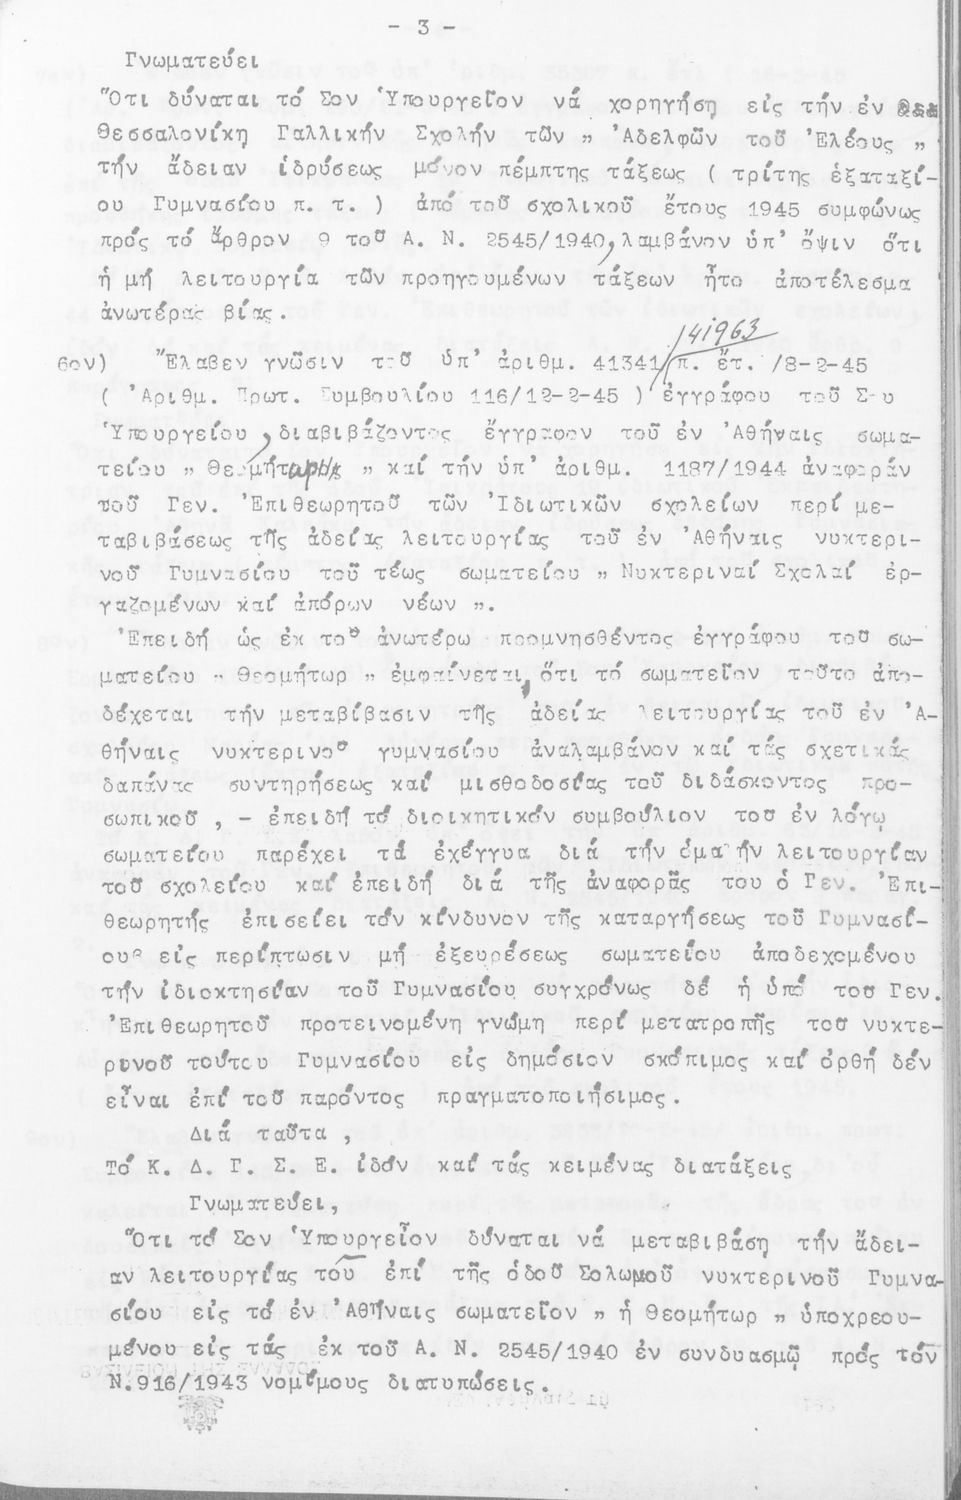 - 3 -
Γνωματεύει
Ὅτι δύναται τό Σον Ὑπουργεῖον νά χορηγήσῃ εἰς τήν ἐν
Θεσσαλονίκῃ Γαλλικήν Σχολήν τῶν " Ἀδελφῶν τοῦ Ἐλέους "
τήν ἄδειαν ἱδρύσεως μόνον πέμπτης τάξεως ( τρίτης ἑξαταξί-
ου Γυμνασίου π. τ. ) ἀπό τοῦ σχολικοῦ ἔτους 1945 συμφώνως
πρός τό ἄρθρον 9 τοῦ Α. Ν. 2545/1940, λαμβάνον ὑπ' ὄψιν ὅτι
ἡ μή λειτουργία τῶν προηγουμένων τάξεων ἦτο ἀποτέλεσμα
ἀνωτέρας βίας.
141963
6ον) Ἔλαβεν γνῶσιν τοῦ ὑπ' ἀριθμ. 41341/π. ἔτ. /8-2-45
( Ἀριθμ. Πρωτ. Συμβουλίου 116/12-2-45 ) ἐγγράφου τοῦ Σ-υ
Ὑπουργείου, διαβιβάζοντος ἔγγραφον τοῦ ἐν Ἀθήναις σωμα-
τείου " Θεομήτωρ " καί τήν ὑπ' ἀριθμ. 1187/1944 ἀναφοράν
τοῦ Γεν. Ἐπιθεωρητοῦ τῶν Ἰδιωτικῶν σχολείων περί με-
ταβιβάσεως τῆς ἀδείας λειτουργίας τοῦ ἐν Ἀθήναις νυκτερι-
νοῦ Γυμνασίου τοῦ τέως σωματείου " Νυκτεριναί Σχολαί ἐρ-
γαζομένων καί ἀπόρων νέων ".
Ἐπειδή ὡς ἐκ τοῦ ἀνωτέρω προμνησθέντος ἐγγράφου τοῦ σω-
ματείου " Θεομήτωρ " ἐμφαίνεται, ὅτι τό σωματεῖον τοῦτο ἀπο-
δέχεται τήν μεταβίβασιν τῆς ἀδείας λειτουργίας τοῦ ἐν Ἀ-
θήναις νυκτερινοῦ γυμνασίου ἀναλαμβάνον καί τάς σχετικάς
δαπάνας συντηρήσεως καί μισθοδοσίας τοῦ διδάσκοντος προ-
σωπικοῦ, - ἐπειδή τό διοικητικόν συμβούλιον τοῦ ἐν λόγῳ
σωματείου παρέχει τά ἐχέγγυα διά τήν ὁμαλήν λειτουργίαν
τοῦ σχολείου καί ἐπειδή διά τῆς ἀναφορᾶς του ὁ Γεν. Ἐπι-
θεωρητής ἐπισείει τόν κίνδυνον τῆς καταργήσεως τοῦ Γυμνασί-
ου εἰς περίπτωσιν μή ἐξευρέσεως σωματείου ἀποδεχομένου
τήν ἰδιοκτησίαν τοῦ Γυμνασίου συγχρόνως δέ ἡ ὑπό τοῦ Γεν.
Ἐπιθεωρητοῦ προτεινομένη γνώμη περί μετατροπῆς τοῦ νυκτε-
ρινοῦ τούτου Γυμνασίου εἰς δημόσιον σκόπιμος καί ὀρθή δέν
εἶναι ἐπί τοῦ παρόντος πραγματοποιήσιμος.
Διά ταῦτα,
Τό Κ. Δ. Γ. Σ. Ε. ἰδόν καί τάς κειμένας διατάξεις
Γνωματεύει,
Ὅτι τό Σον Ὑπουργεῖον δύναται νά μεταβιβάσῃ τήν ἄδει-
αν λειτουργίας τοῦ ἐπί τῆς ὁδοῦ Σολωμοῦ νυκτερινοῦ Γυμνα-
σίου εἰς τό ἐν Ἀθήναις σωματεῖον " ἡ Θεομήτωρ " ὑποχρεου-
μένου εἰς τάς ἐκ τοῦ Α. Ν. 2545/1940 ἐν συνδυασμῷ πρός τόν
Ν.916/1943 νομίμους διατυπώσεις.